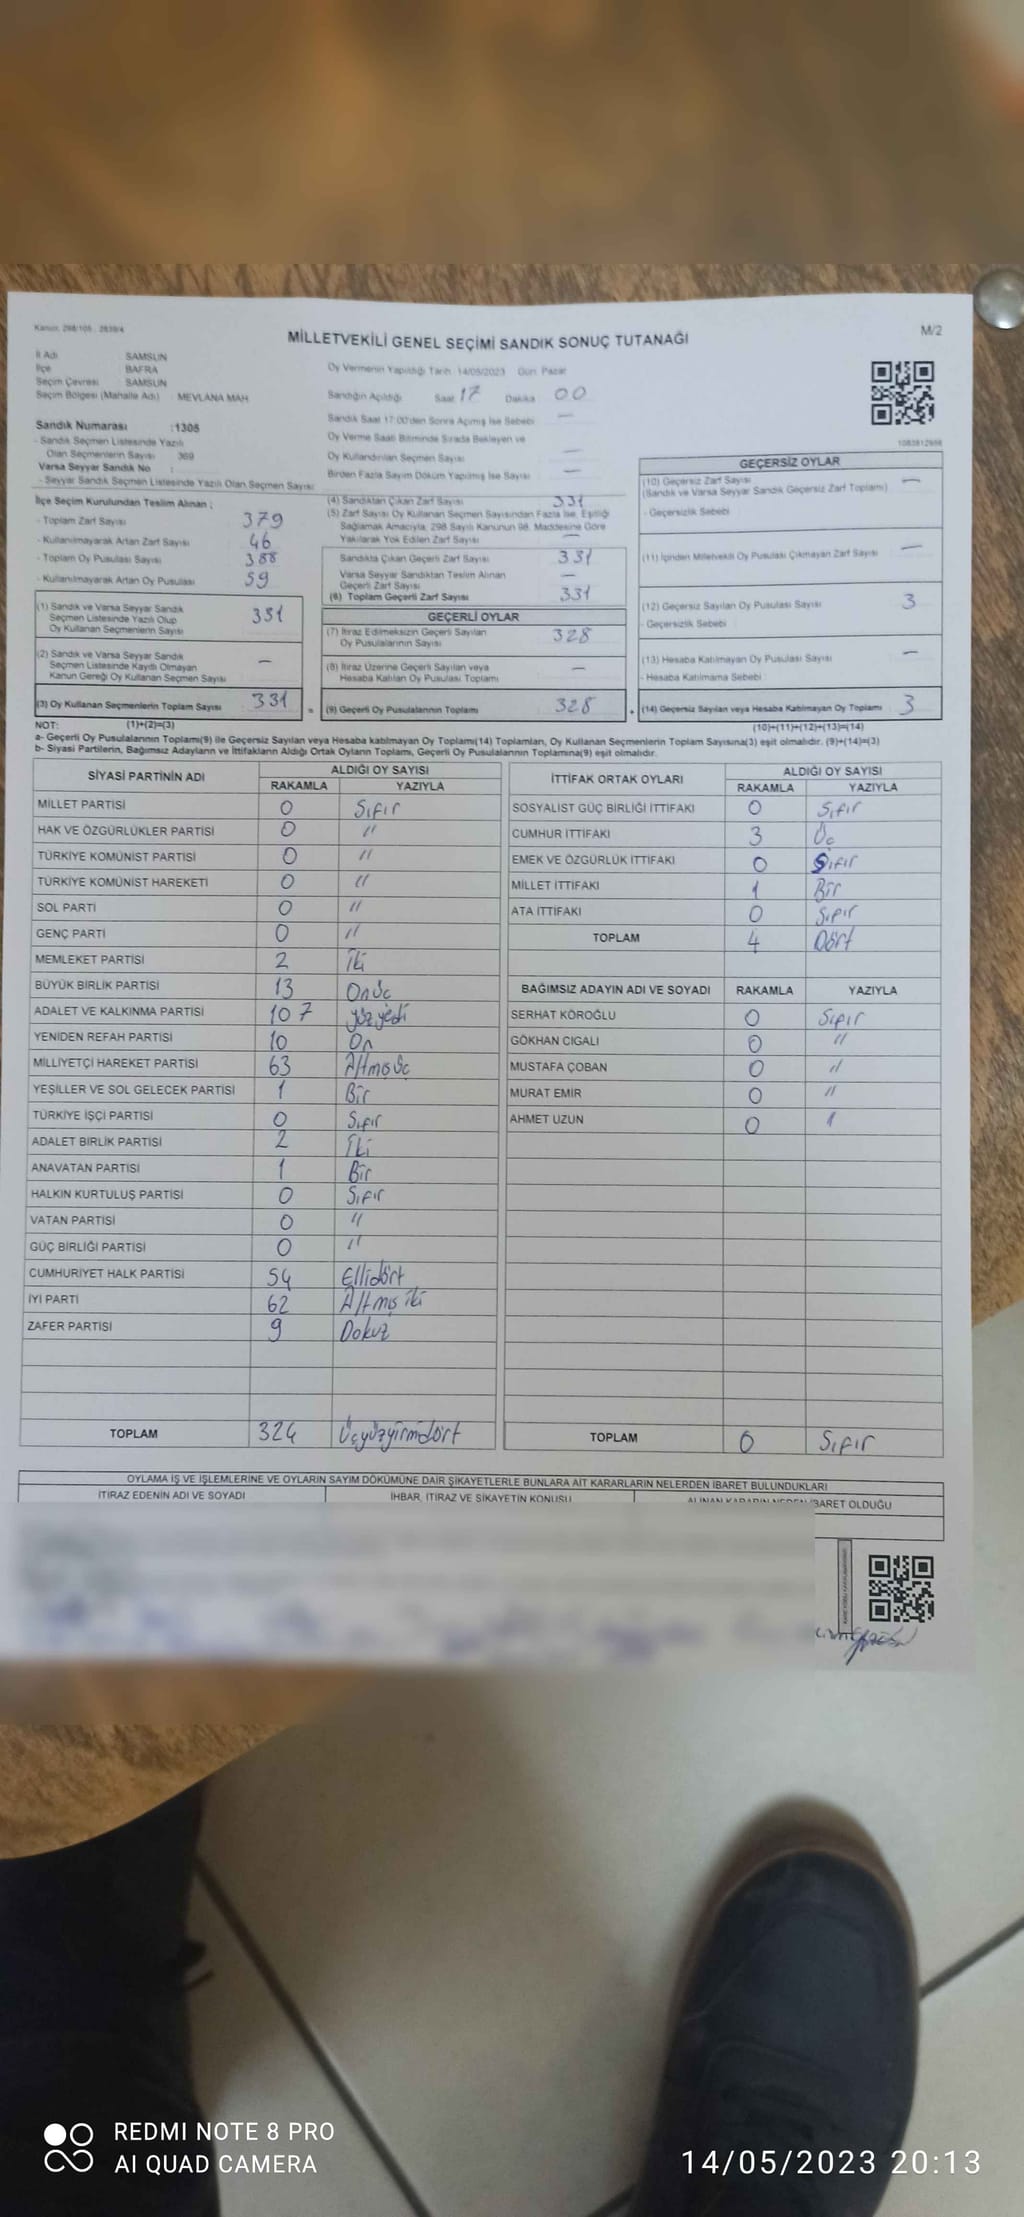 Kanun: 298/105 , 2839/4
M/2
MİLLETVEKİLİ GENEL SEÇİMİ SANDIK SONUÇ TUTANAĞI
İl Adı SAMSUN
İlçe BAFRA
Seçim Çevresi SAMSUN
Seçim Bölgesi (Mahalle Adı) : MEVLANA MAH
Sandık Numarası :1305
- Sandık Seçmen Listesinde Yazılı
Olan Seçmenlerin Sayısı 369
Varsa Seyyar Sandık No :
- Seyyar Sandık Seçmen Listesinde Yazılı Olan Seçmen Sayısı
Oy Vermenin Yapıldığı Tarih :14/05/2023 Gün: Pazar
Sandığın Açıldığı Saat 17 Dakika 00
Sandık Saat 17:00'den Sonra Açımış İse Sebebi —
Oy Verme Saati Bitiminde Sırada Bekleyen ve
Oy Kullandırılan Seçmen Sayısı —
Birden Fazla Sayım Döküm Yapılmış İse Sayısı —
İlçe Seçim Kurulundan Teslim Alınan ;
- Toplam Zarf Sayısı 379
- Kullanılmayarak Artan Zarf Sayısı 46
- Toplam Oy Pusulası Sayısı 388
- Kullanılmayarak Artan Oy Pusulası 59
(1) Sandık ve Varsa Seyyar Sandık
Seçmen Listesinde Yazılı Olup
Oy Kullanan Seçmenlerin Sayısı 331
(2) Sandık ve Varsa Seyyar Sandık
Seçmen Listesinde Kayıtlı Olmayan
Kanun Gereği Oy Kullanan Seçmen Sayısı —
(3) Oy Kullanan Seçmenlerin Toplam Sayısı 331 =
(4) Sandıktan Çıkan Zarf Sayısı 331
(5) Zarf Sayısı Oy Kullanan Seçmen Sayısından Fazla İse, Eşitliği
Sağlamak Amacıyla, 298 Sayılı Kanunun 98. Maddesine Göre
Yakılarak Yok Edilen Zarf Sayısı —
Sandıkta Çıkan Geçerli Zarf Sayısı 331
Varsa Seyyar Sandıktan Teslim Alınan
Geçerli Zarf Sayısı —
(6) Toplam Geçerli Zarf Sayısı 331
GEÇERLİ OYLAR
(7) İtiraz Edilmeksizin Geçerli Sayılan
Oy Pusulalarının Sayısı 328
(8) İtiraz Üzerine Geçerli Sayılan veya
Hesaba Katılan Oy Pusulası Toplamı —
(9) Geçerli Oy Pusulalarının Toplamı 328 +
GEÇERSİZ OYLAR
(10) Geçersiz Zarf Sayısı
(Sandık ve Varsa Seyyar Sandık Geçersiz Zarf Toplamı) —
- Geçersizlik Sebebi
(11) İçinden Milletvekili Oy Pusulası Çıkmayan Zarf Sayısı —
(12) Geçersiz Sayılan Oy Pusulası Sayısı 3
- Geçersizlik Sebebi
(13) Hesaba Katılmayan Oy Pusulası Sayısı —
- Hesaba Katılmama Sebebi
(14) Geçersiz Sayılan veya Hesaba Katılmayan Oy Toplamı 3
NOT: (1)+(2)=(3) (10)+(11)+(12)+(13)=(14)
a- Geçerli Oy Pusulalarının Toplamı(9) ile Geçersiz Sayılan veya Hesaba katılmayan Oy Toplamı(14) Toplamları, Oy Kullanan Seçmenlerin Toplam Sayısına(3) eşit olmalıdır. (9)+(14)=(3)
b- Siyasi Partilerin, Bağımsız Adayların ve İttifakların Aldığı Ortak Oyların Toplamı, Geçerli Oy Pusulalarının Toplamına(9) eşit olmalıdır.
SİYASİ PARTİNİN ADI ALDIĞI OY SAYISI
RAKAMLA YAZIYLA
MİLLET PARTİSİ 0 Sıfır
HAK VE ÖZGÜRLÜKLER PARTİSİ 0 "
TÜRKİYE KOMÜNİST PARTİSİ 0 "
TÜRKİYE KOMÜNİST HAREKETİ 0 "
SOL PARTİ 0 "
GENÇ PARTİ 0 "
MEMLEKET PARTİSİ 2 İki
BÜYÜK BİRLİK PARTİSİ 13 Onüç
ADALET VE KALKINMA PARTİSİ 107 yüzyedi
YENİDEN REFAH PARTİSİ 10 On
MİLLİYETÇİ HAREKET PARTİSİ 63 Altmışüç
YEŞİLLER VE SOL GELECEK PARTİSİ 1 Bir
TÜRKİYE İŞÇİ PARTİSİ 0 Sıfır
ADALET BİRLİK PARTİSİ 2 İki
ANAVATAN PARTİSİ 1 Bir
HALKIN KURTULUŞ PARTİSİ 0 Sıfır
VATAN PARTİSİ 0 "
GÜÇ BİRLİĞİ PARTİSİ 0 "
CUMHURİYET HALK PARTİSİ 54 Ellidört
İYİ PARTİ 62 Altmış iki
ZAFER PARTİSİ 9 Dokuz
TOPLAM 324 Üçyüzyirmidört
İTTİFAK ORTAK OYLARI ALDIĞI OY SAYISI
RAKAMLA YAZIYLA
SOSYALİST GÜÇ BİRLİĞİ İTTİFAKI 0 Sıfır
CUMHUR İTTİFAKI 3 Üç
EMEK VE ÖZGÜRLÜK İTTİFAKI 0 Sıfır
MİLLET İTTİFAKI 1 Bir
ATA İTTİFAKI 0 Sıfır
TOPLAM 4 Dört
BAĞIMSIZ ADAYIN ADI VE SOYADI RAKAMLA YAZIYLA
SERHAT KÖROĞLU 0 Sıfır
GÖKHAN CIGALI 0 "
MUSTAFA ÇOBAN 0 "
MURAT EMİR 0 "
AHMET UZUN 0
TOPLAM 0 Sıfır
OYLAMA İŞ VE İŞLEMLERİNE VE OYLARIN SAYIM DÖKÜMÜNE DAİR ŞİKAYETLERLE BUNLARA AİT KARARLARIN NELERDEN İBARET BULUNDUKLARI
İTİRAZ EDENİN ADI VE SOYADI İHBAR, İTİRAZ VE ŞİKAYETİN KONUSU ALINAN KARARIN NEDEN İBARET OLDUĞU
REDMI NOTE 8 PRO
AI QUAD CAMERA
14/05/2023 20:13